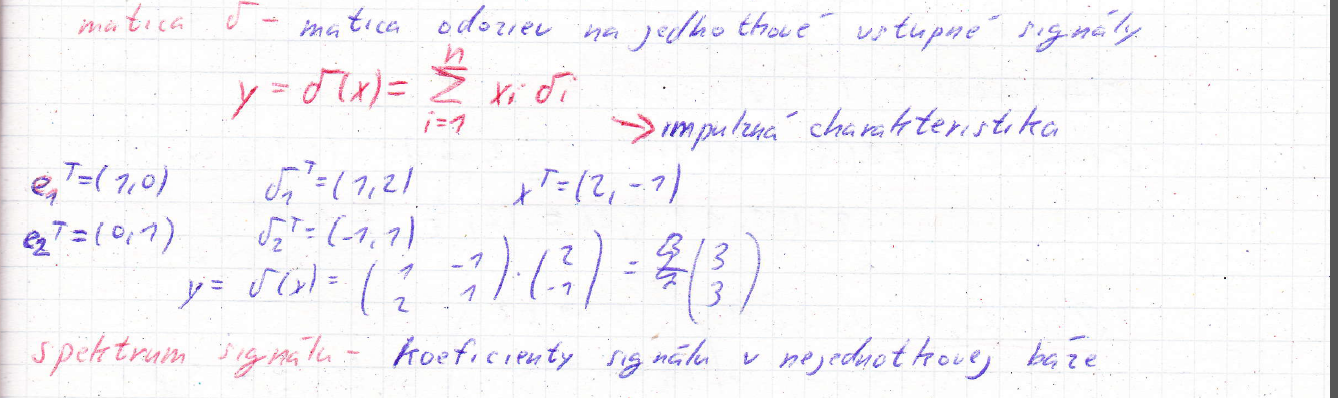 matica σ - matica odoziev na jednotkové vstupné signály
y = σ(x) = \sum_{i=1}^{n} x_i σ_i
→ impulzná charakteristika
e_1^T = (1,0) σ_1^T = (1,2) x^T = (2,-1)
e_2^T = (0,1) σ_2^T = (-1,1)
y = σ(x) = \begin{pmatrix} 1 & -1 \\ 2 & 1 \end{pmatrix} \cdot \begin{pmatrix} 2 \\ -1 \end{pmatrix} = \begin{pmatrix} 3 \\ 3 \end{pmatrix}
spektrum signálu - koeficienty signálu v nejednotkovej báze